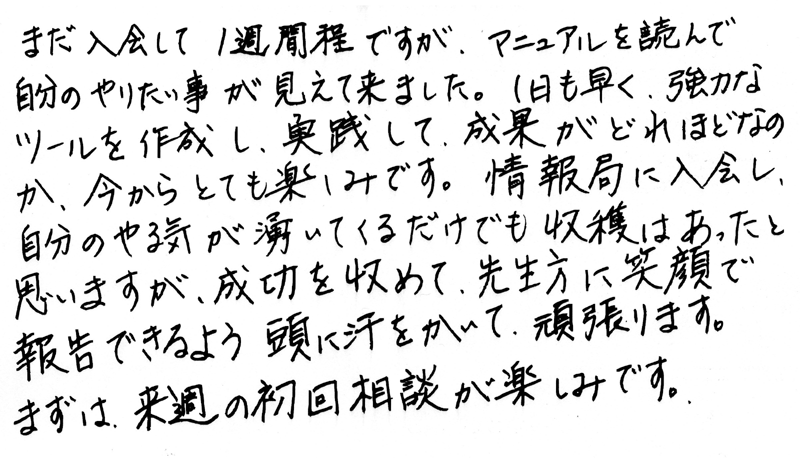 まだ入会して1週間程ですが、マニュアルを読んで
自分のやりたい事が見えて来ました。1日も早く、強力な
ツールを作成し、実践して、成果がどれほどなの
か、今からとても楽しみです。情報局に入会し、
自分のやる気が湧いてくるだけでも収穫はあったと
思いますが、成功を収めて、先生方に笑顔で
報告できるよう頭に汗をかいて、頑張ります。
まずは、来週の初回相談が楽しみです。